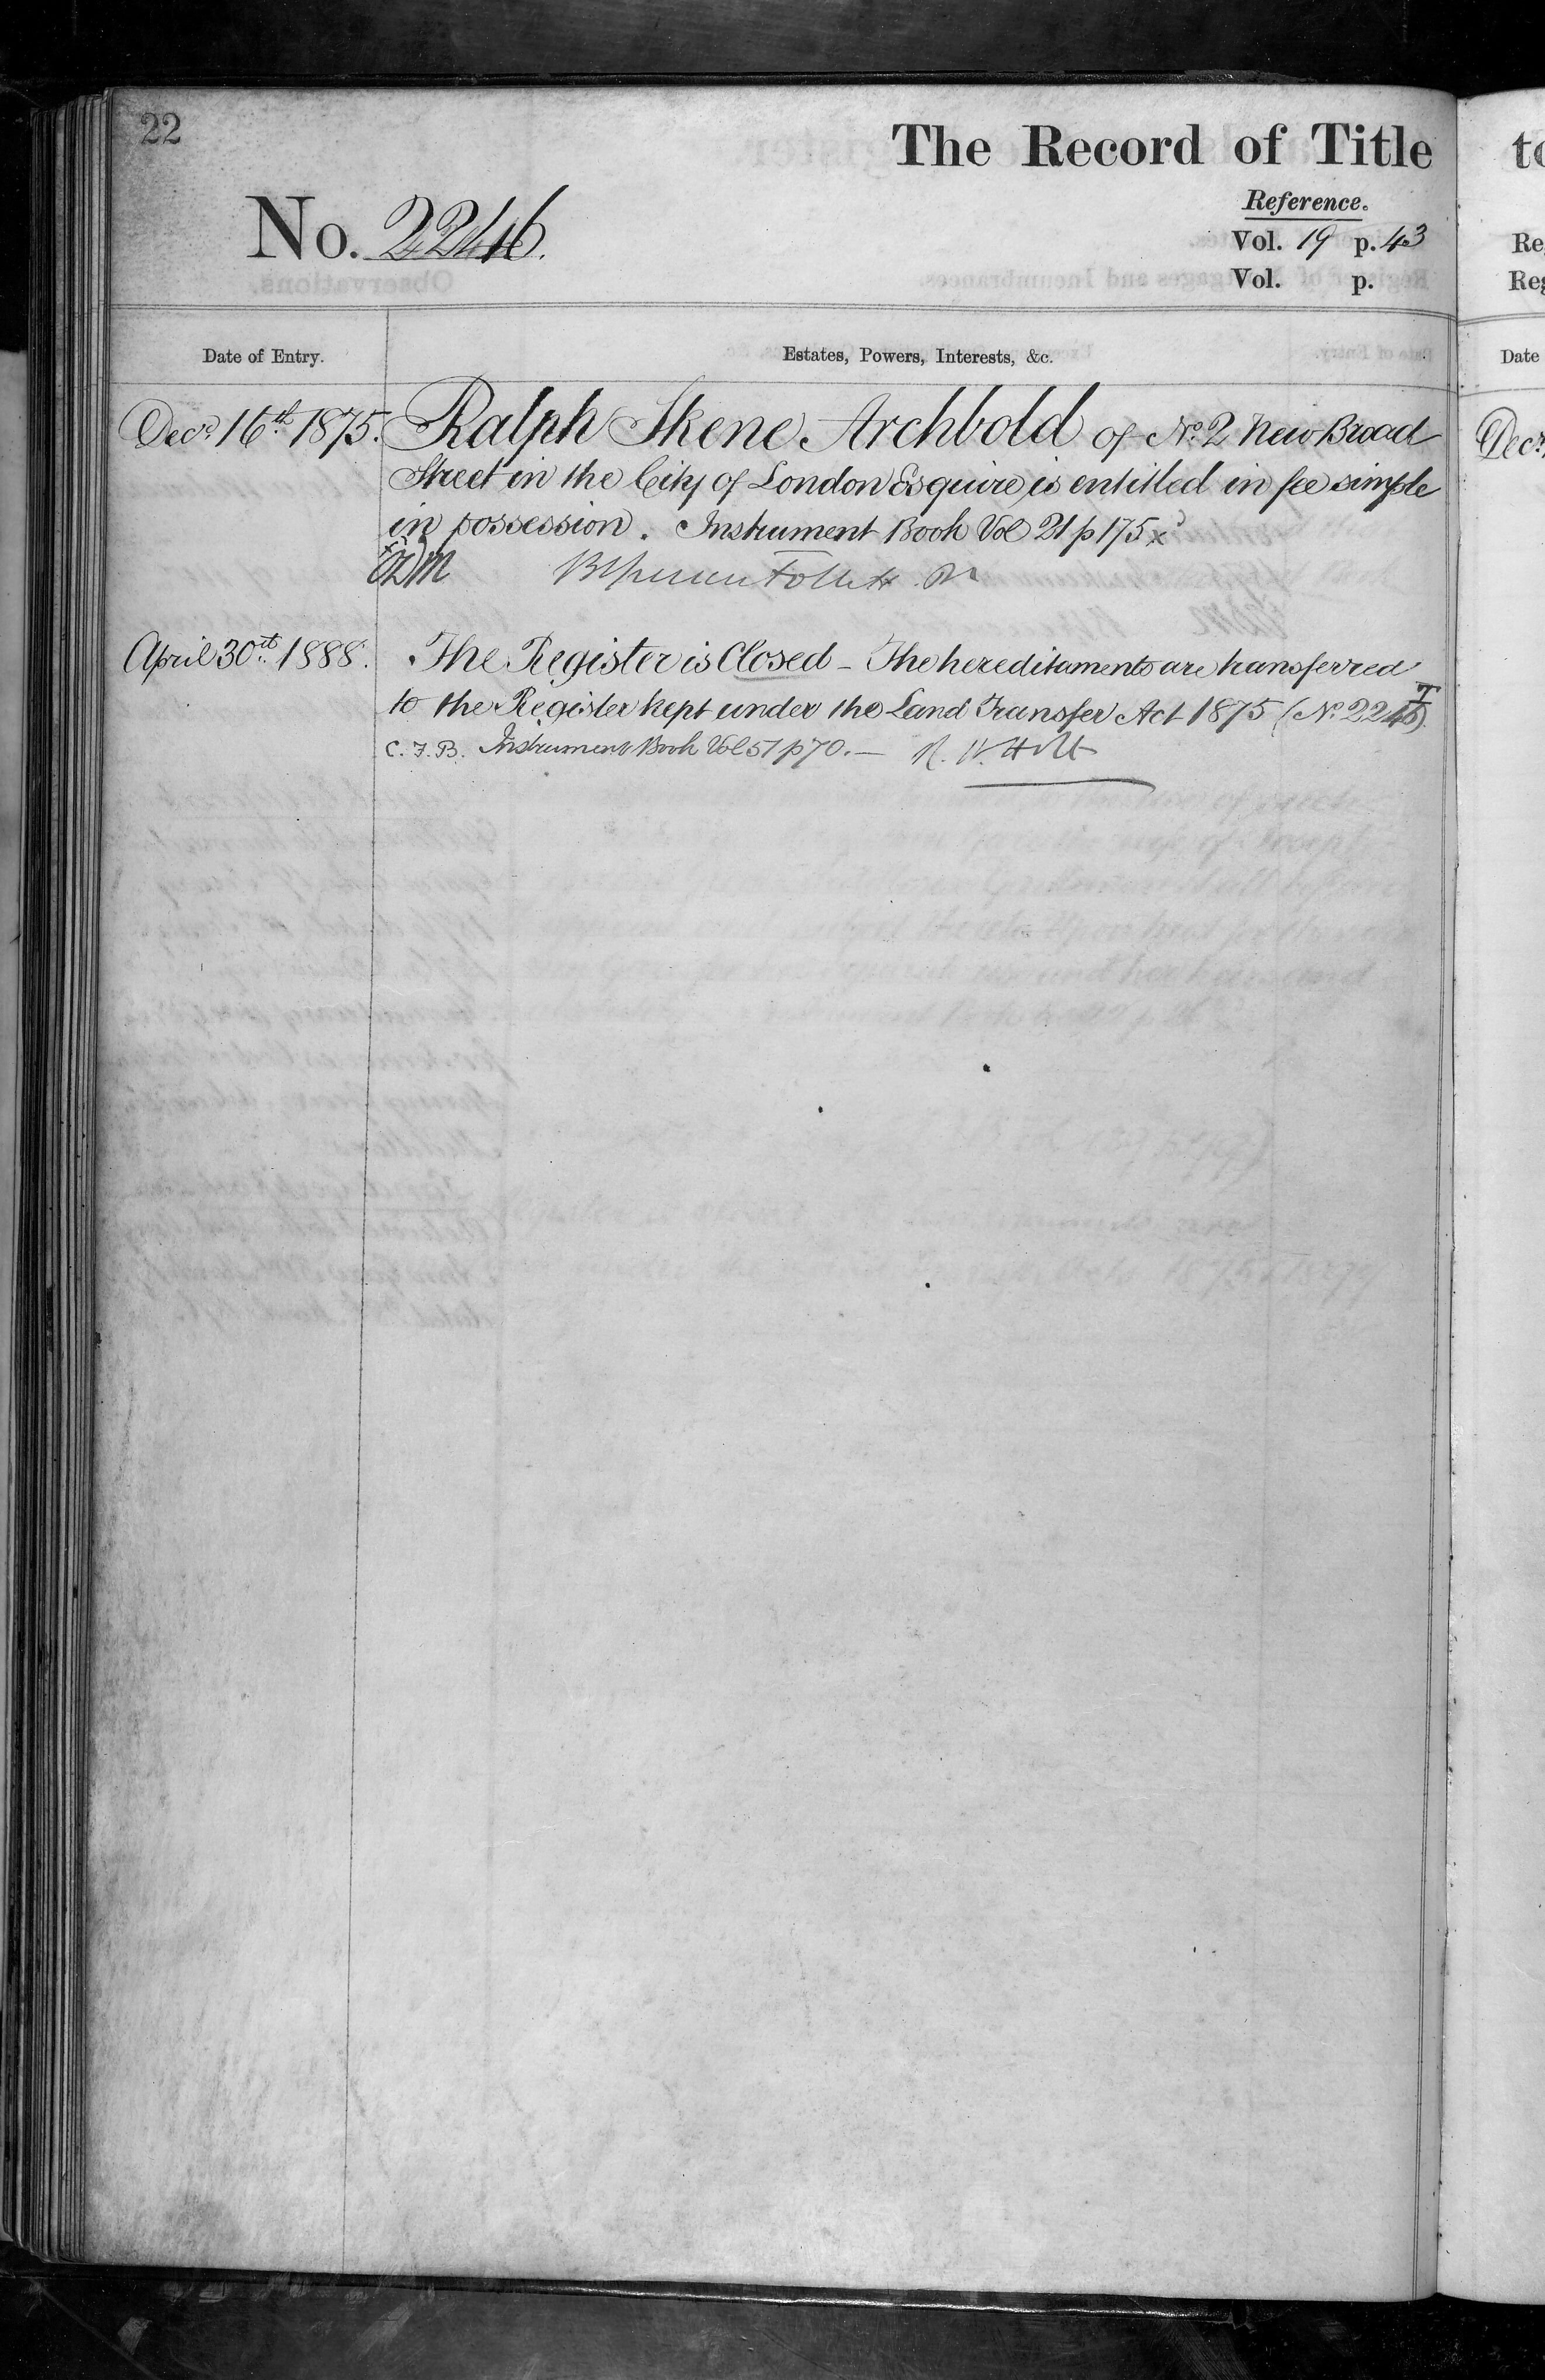 22
The Record of Title
Reference.
No. 2246.
Vol. 19 p. 43
Vol. p.
Date of Entry.
Estates, Powers, Interests, &c.
Decr. 16th 1875. Ralph Skene Archbold of No. 2 New Broad
Street in the City of London Esquire is entitled in fee simple
in possession. Instrument Book Vol 21 p 175 x
Follett
April 30th 1888. The Register is Closed - The hereditaments are transferred
to the Register kept under the Land Transfer Act 1875 (No. 2246T).
C. F. B. Instrument Book Vol 51 p 70. — R. W. Holt
to
Re
Reg
Date
Decr.